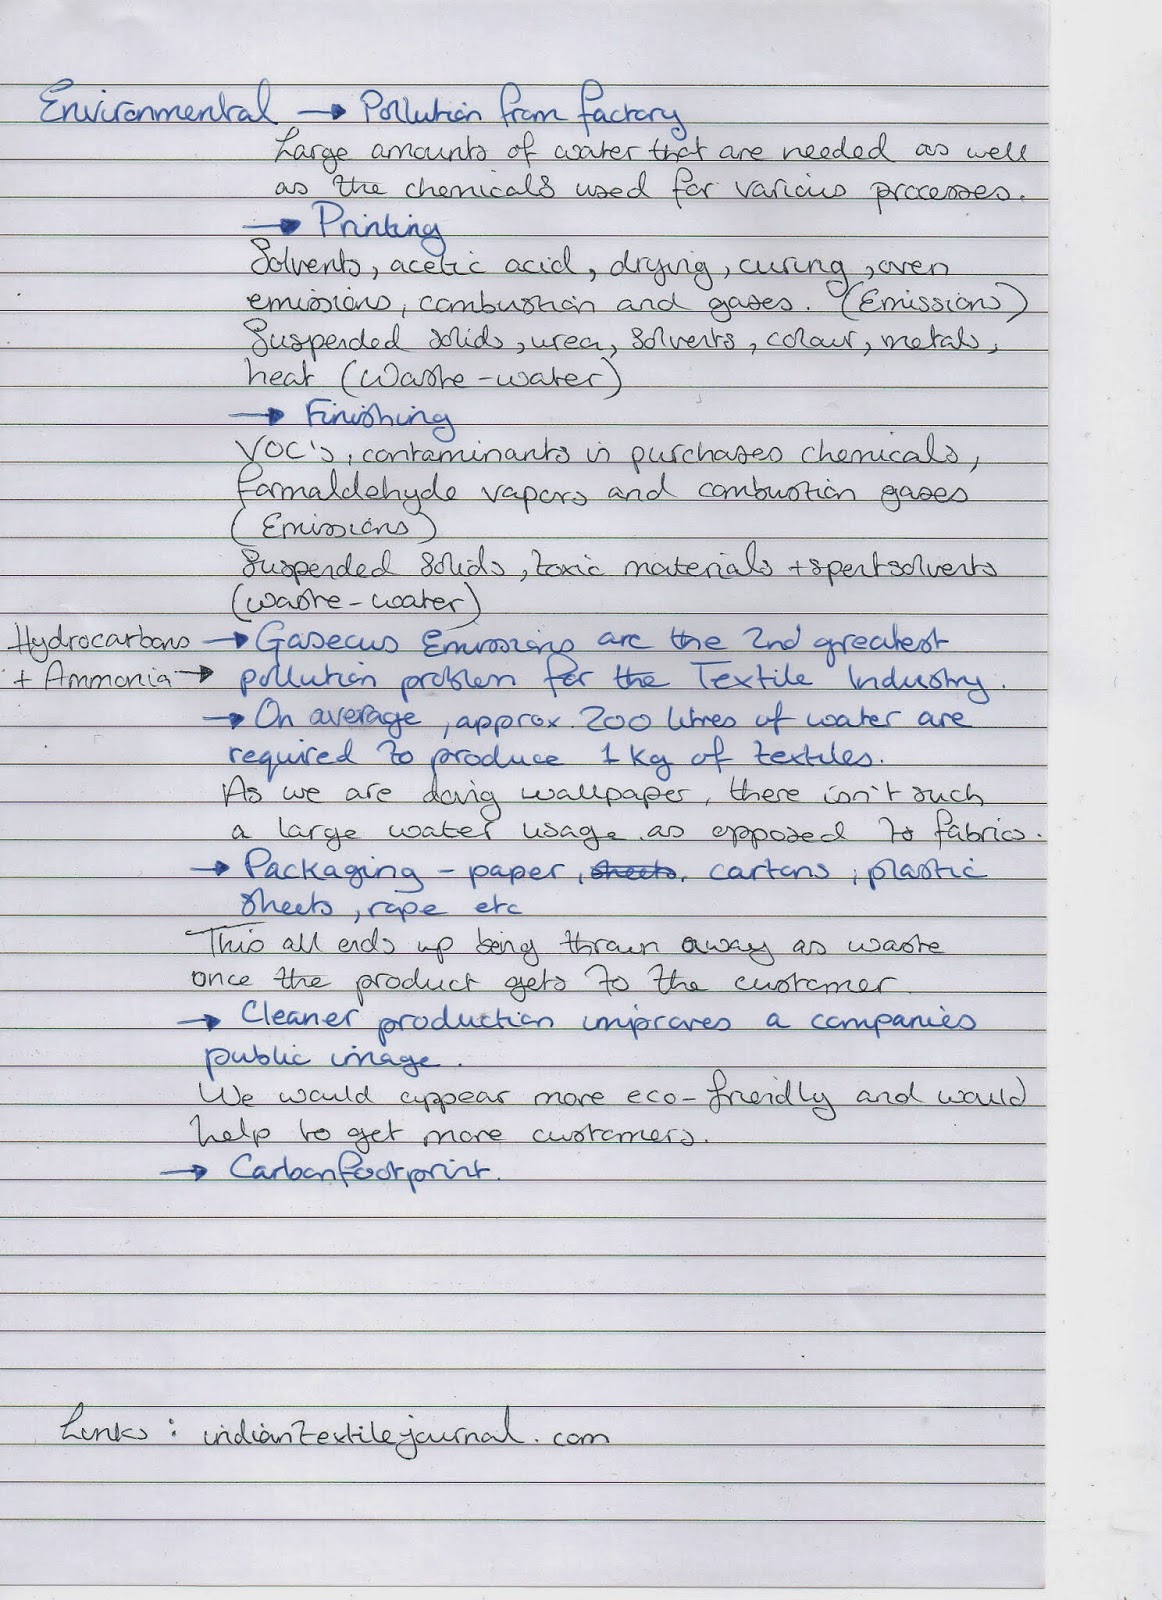 Environmental → Pollution from factory
Large amounts of water that are needed as well
as the chemicals used for various processes.
→ Printing
Solvents, acetic acid, drying, curing, oven
emissions, combustion and gases. (Emissions)
Suspended solids, urea, solvents, colour, metals,
heat (Waste-water)
→ Finishing
VOC's, contaminants in purchases chemicals,
formaldehyde vapors and combustion gases
(Emissions)
Suspended solids, toxic materials + spent solvents
(waste-water)
Hydrocarbons → Gaseous Emissions are the 2nd greatest
+ Ammonia → pollution problem for the Textile Industry.
→ On average, approx. 200 litres of water are
required to produce 1kg of textiles.
As we are doing wallpaper, there isn't such
a large water usage as opposed to fabrics.
→ Packaging - paper, sheets, cartons, plastic
sheets, rope etc
This all ends up being thrown away as waste
once the product gets to the customer.
→ Cleaner production improves a companies
public image.
We would appear more eco-friendly and would
help to get more customers.
→ Carbon footprint.
Links: indiantextilejournal.com